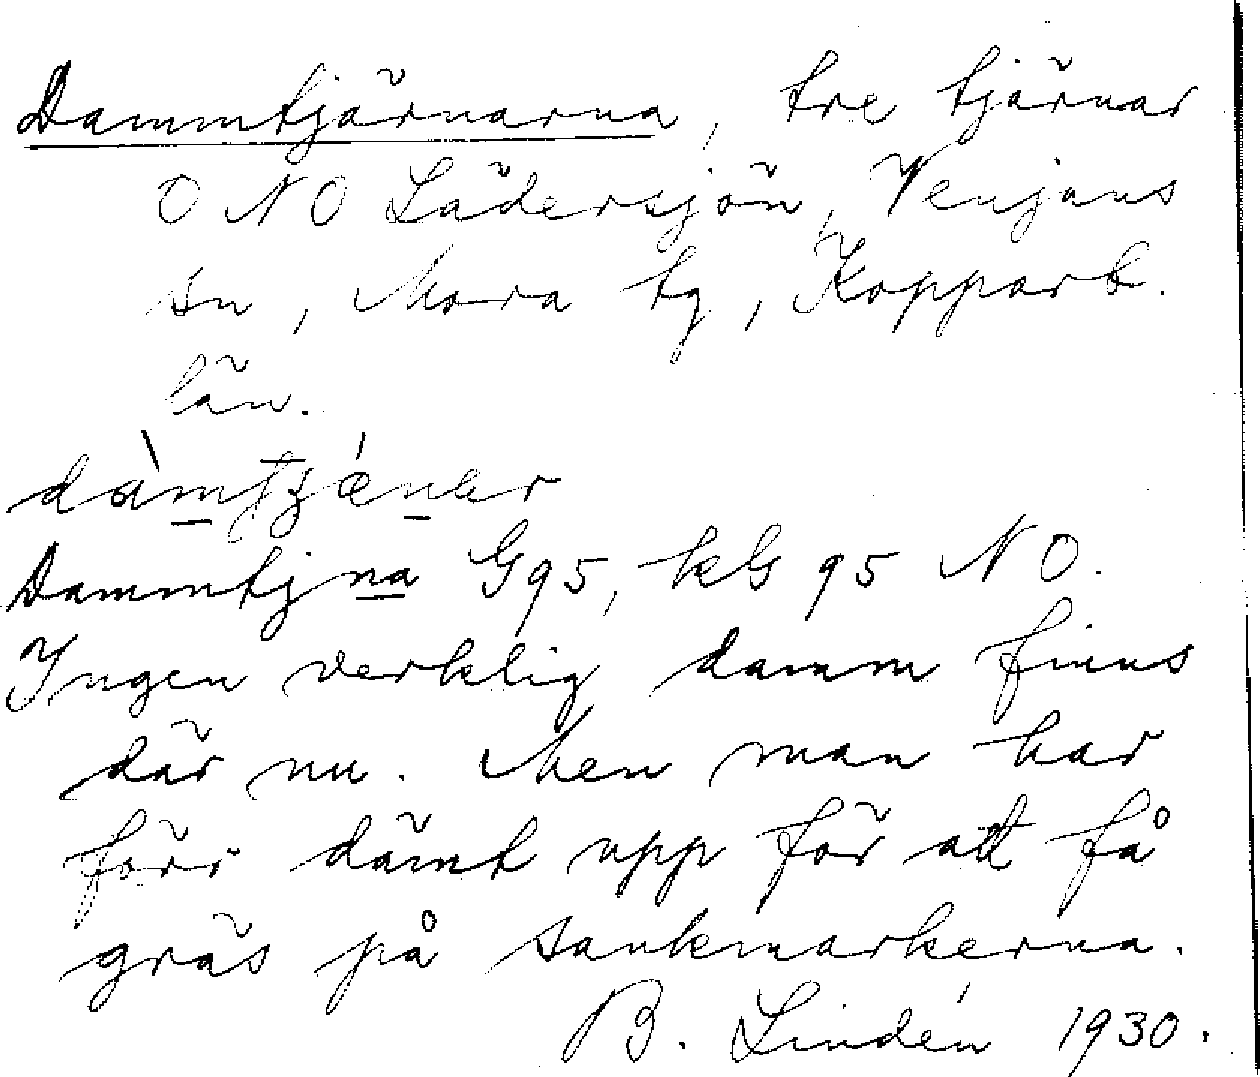 Dammtjärnarna, tre tjärnar
ONO Lädersjön, Venjans
sn, Mora tg, Kopparb.
län.
Dammtjna G95, kbl 95 NO.
Ingen verklig damm finns
där nu. Men man har
förr dämt upp för att få
gräs på sankmarkerna.
B. Lindén 1930.